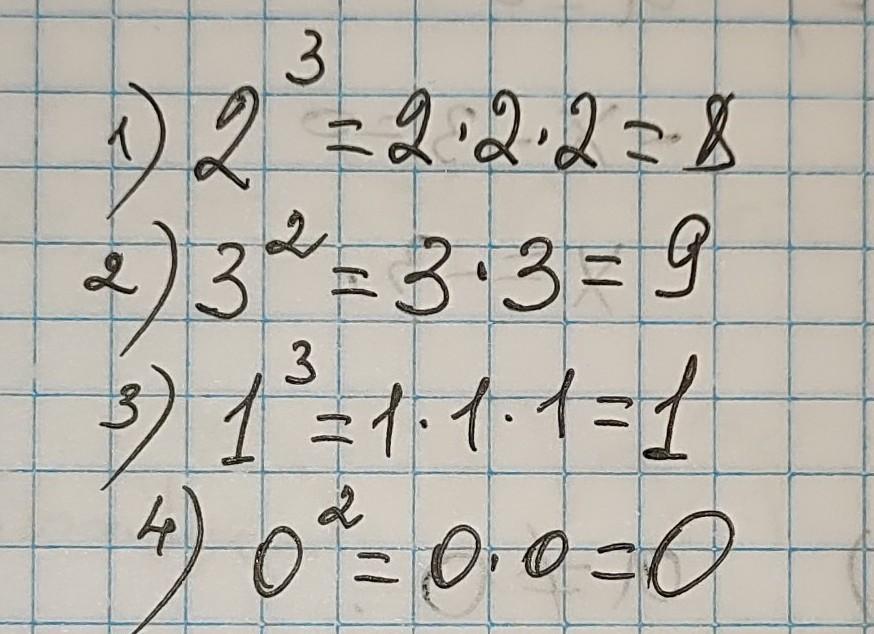 1) 2³ = 2·2·2 = 8
2) 3² = 3·3 = 9
3) 1³ = 1·1·1 = 1
4) 0² = 0·0 = 0